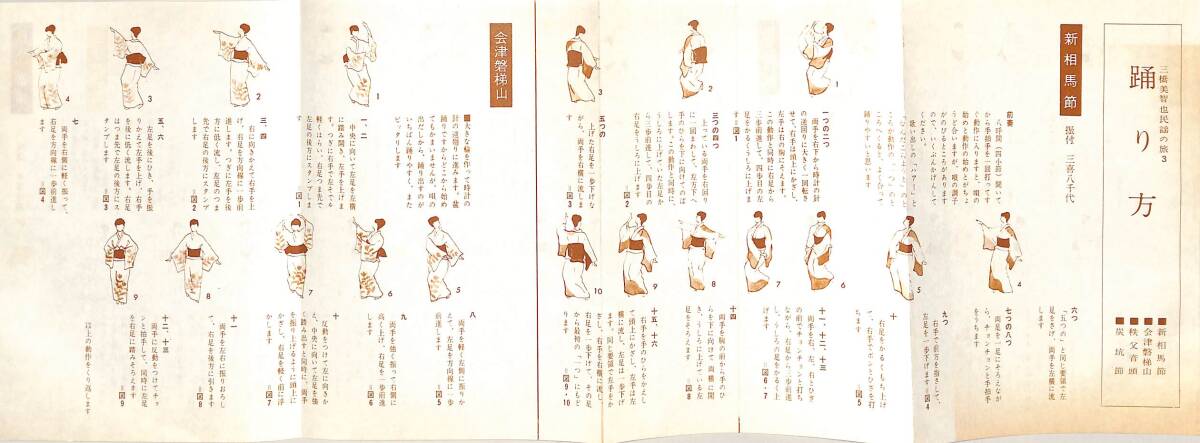 三橋美智也民謡の旅3
踊り方
■新相馬節
■会津磐梯山
■秩父音頭
■炭坑節
新相馬節
振付 三喜八千代
前奏
一つの二つ
両手を右下から時計の針
の逆回りに大きく一回転さ
せて、右手は頭上にかざし、
左手は右の胸にそえます。
この動作と同時に右足から
三歩前進して、四歩目の左
足をかるくうしろに上げま
す
■図1
三つの四つ
上っている両手を右回り
に一回まわして、左方下へ
手のひらを下に向けてのば
します。この動作と同時に、
うしろに上げていた左足か
ら三歩前進して、四歩目の
右足をうしろに上げます
■図2
五つの
上げた右足を一歩下げな
がら、両手を右横に流しま
す
■図3
六つ
「五つの」と同じ要領で左
足をさげ、両手を左横に流
します
七つの八つ
両足を一足にそろえなが
ら、チョンチョンと手拍手
をうちます
九つ
右手で前方を指さして、
左足を一歩下げます
■図4
十
右足をかるくもち上げ
て、右手でポンとひざを打
ちます
■図5
十一、十二、十三
両手を右、左、右とひざ
の前でチョンチョンと打ち
ながら、右足から三歩前進
し、うしろの足をかるく上
げます
■図6・7
十四
両手を胸の前から手のひ
らを下に向けて両横に開
き、うしろに上げている左
足をそろえます
■図8
十五、十六
右手を手のひらをかえし
て頭上にかざし、左手は左
横に流し、左足は一歩下げ
ます。同じ要領で左手をか
ざし、右手を右横に流し、
右足を一歩下げて、その足
から最初の「一つ」にもど
ります
■図9・10
会津磐梯山
■大きな輪を作って時計の
針の逆廻りに進みます。盆
踊りですからどこから始め
てもかまいませんが、唄の
出だしから、踊り出すのが
いちばん踊りやすく、また
ピッタリします
一、二
中央に向いて左足を左横
に踏み開き、左手を上げま
す。つぎに右手で左そでを
軽くはらい、右足つま先で
左足の後方にスタンプしま
す
■図1
三、四
右に向きかえて右手を上
げ、右足を右方向に一歩前
進します。つぎに左手を後
方に低く流し、左足のつま
先で右足の後方にスタンプ
します
■図2
五、六
左足を後にひき、手を振
りかえて左手を上げ、右手
を後に低く流します。右足
はつま先で左足の後方にス
タンプします
■図3
七
両手を右側に軽く振って、
右足を右方向線に一歩前進し
ます
■図4
八
両手を軽く左側に振りか
えて、左足を右方向線に一歩
前進します
■図5
九
両手を強く振って右側に
高く上げ、右足を一歩前進
します
■図6
十
反動をつけて左に向きか
え、中央に向いて左足を強
く踏み出すと同時に、両手
を振り上げるように頭上に
かざし、右足を軽く前に浮
かします
■図7
十一
両手を左右に振りおろし
て、右足を後方に引きます
■図8
十二、十三
両手に反動をつけてチョ
ンと拍手して、同時に左足
を右足に踏みそろえます
■図9
以上の動作をくり返します